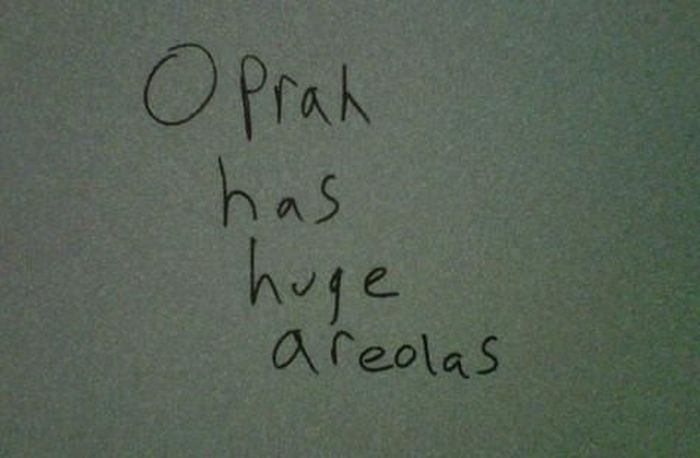 Oprah
has
huge
areolas